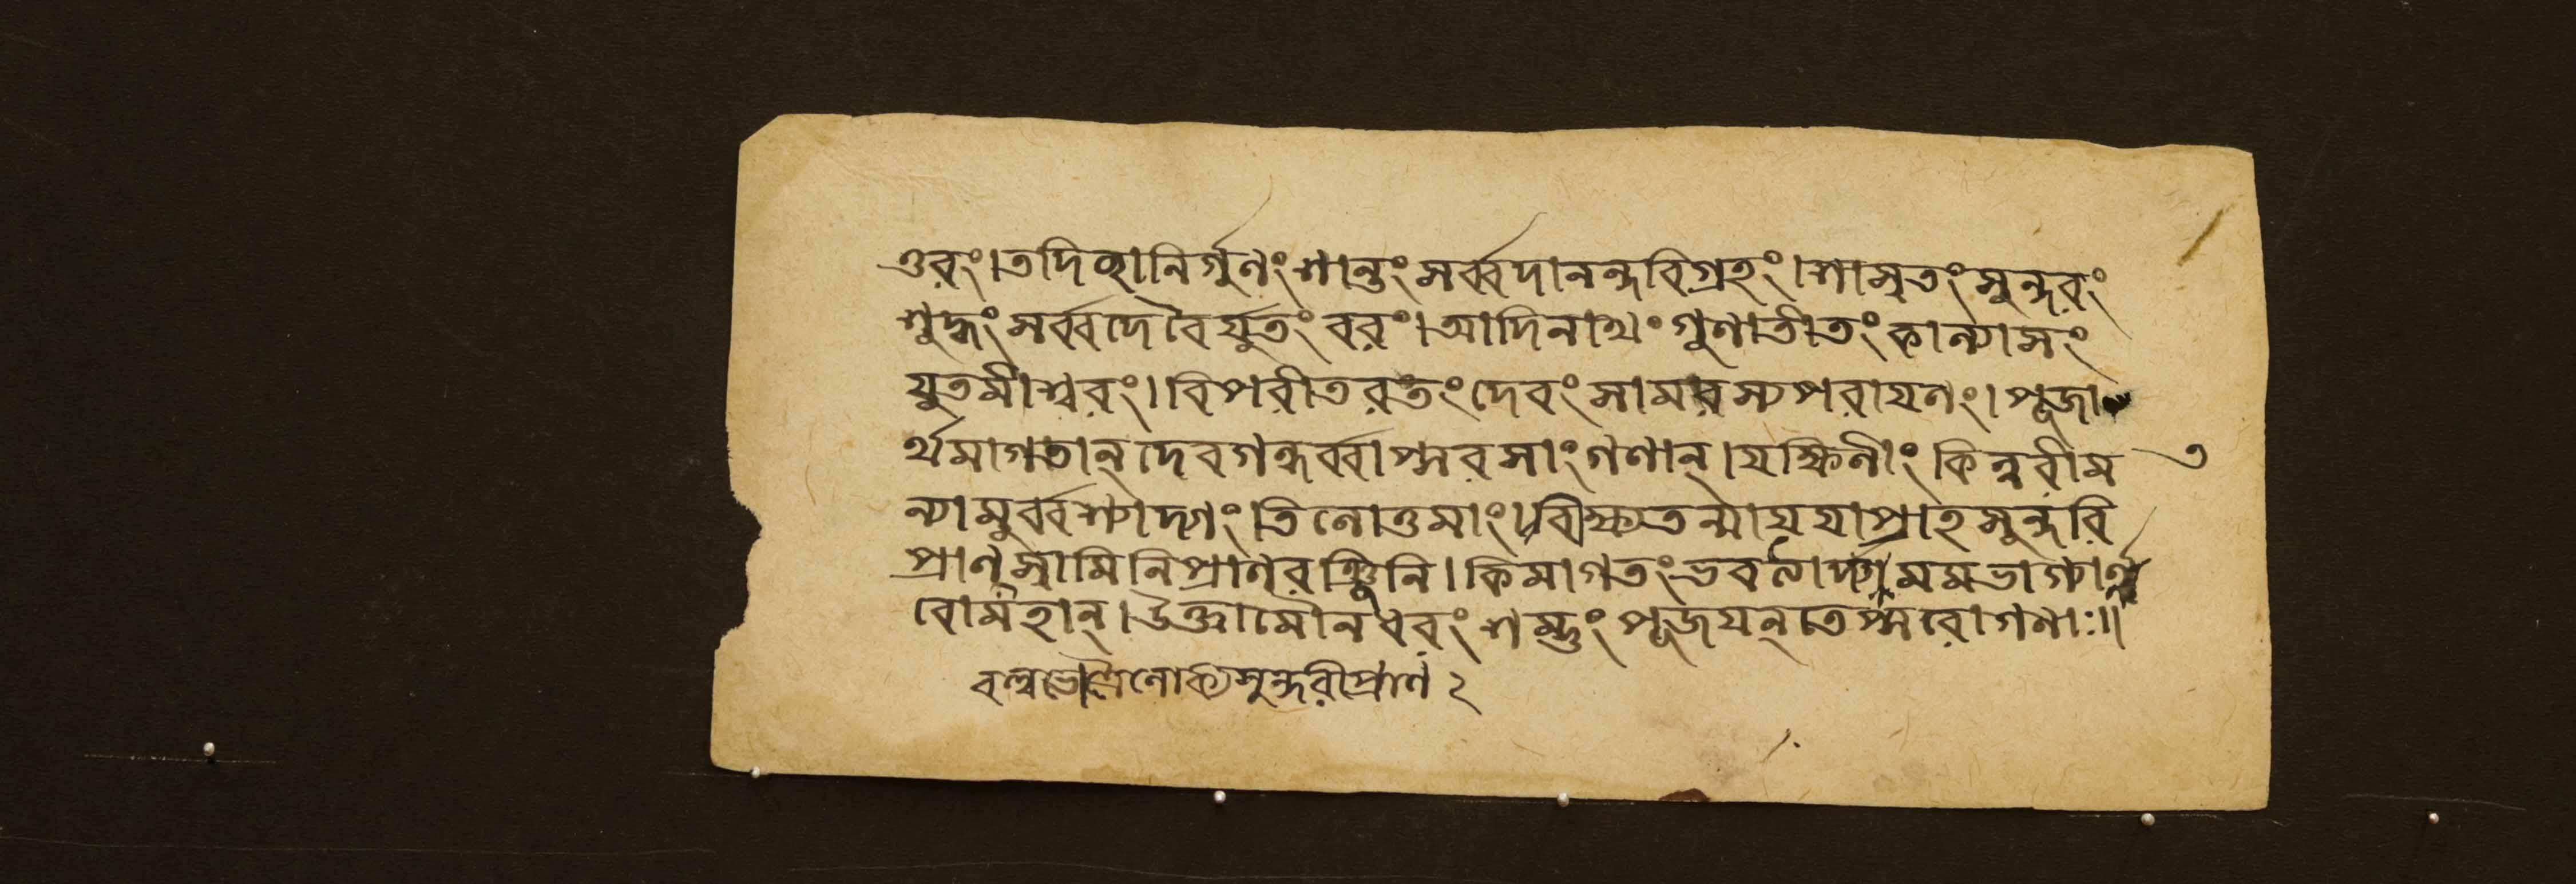 ওরং।তদিহানির্গুণংশান্তংসর্ব্বদানন্দবিগ্রহং।শাস্বতংসুন্দরং
শুদ্ধংসর্ব্বদেবৈর্যুতংবরং।আদিনাথংগুণাতীতংকান্যাসং
যুতমীশ্বরং।বিপরীতরতংদেবংসামরস্যপরায়নং।পূজা
র্থমাগতান্দেবগন্ধর্ব্বাপ্সরসাংগণান্।যক্ষিনীংকিন্নরীম
ন্যামুর্ব্বশ্যাদ্যং।তিলোত্তমাং।বীক্ষ্যতন্মায়য়াপ্রাহসুন্দরি
প্রাণস্বামিনিপ্রাণরঞ্জিনি।কিমাগতংমমভাগ্যার্ণ
বোমহান্।উক্ত্বামৌনধরংশম্ভুংপূজয়ন্তেপ্সরোগণাঃ॥
বল্লভেত্রৈলোক্যসুন্দরীপ্রাণ ২
৩